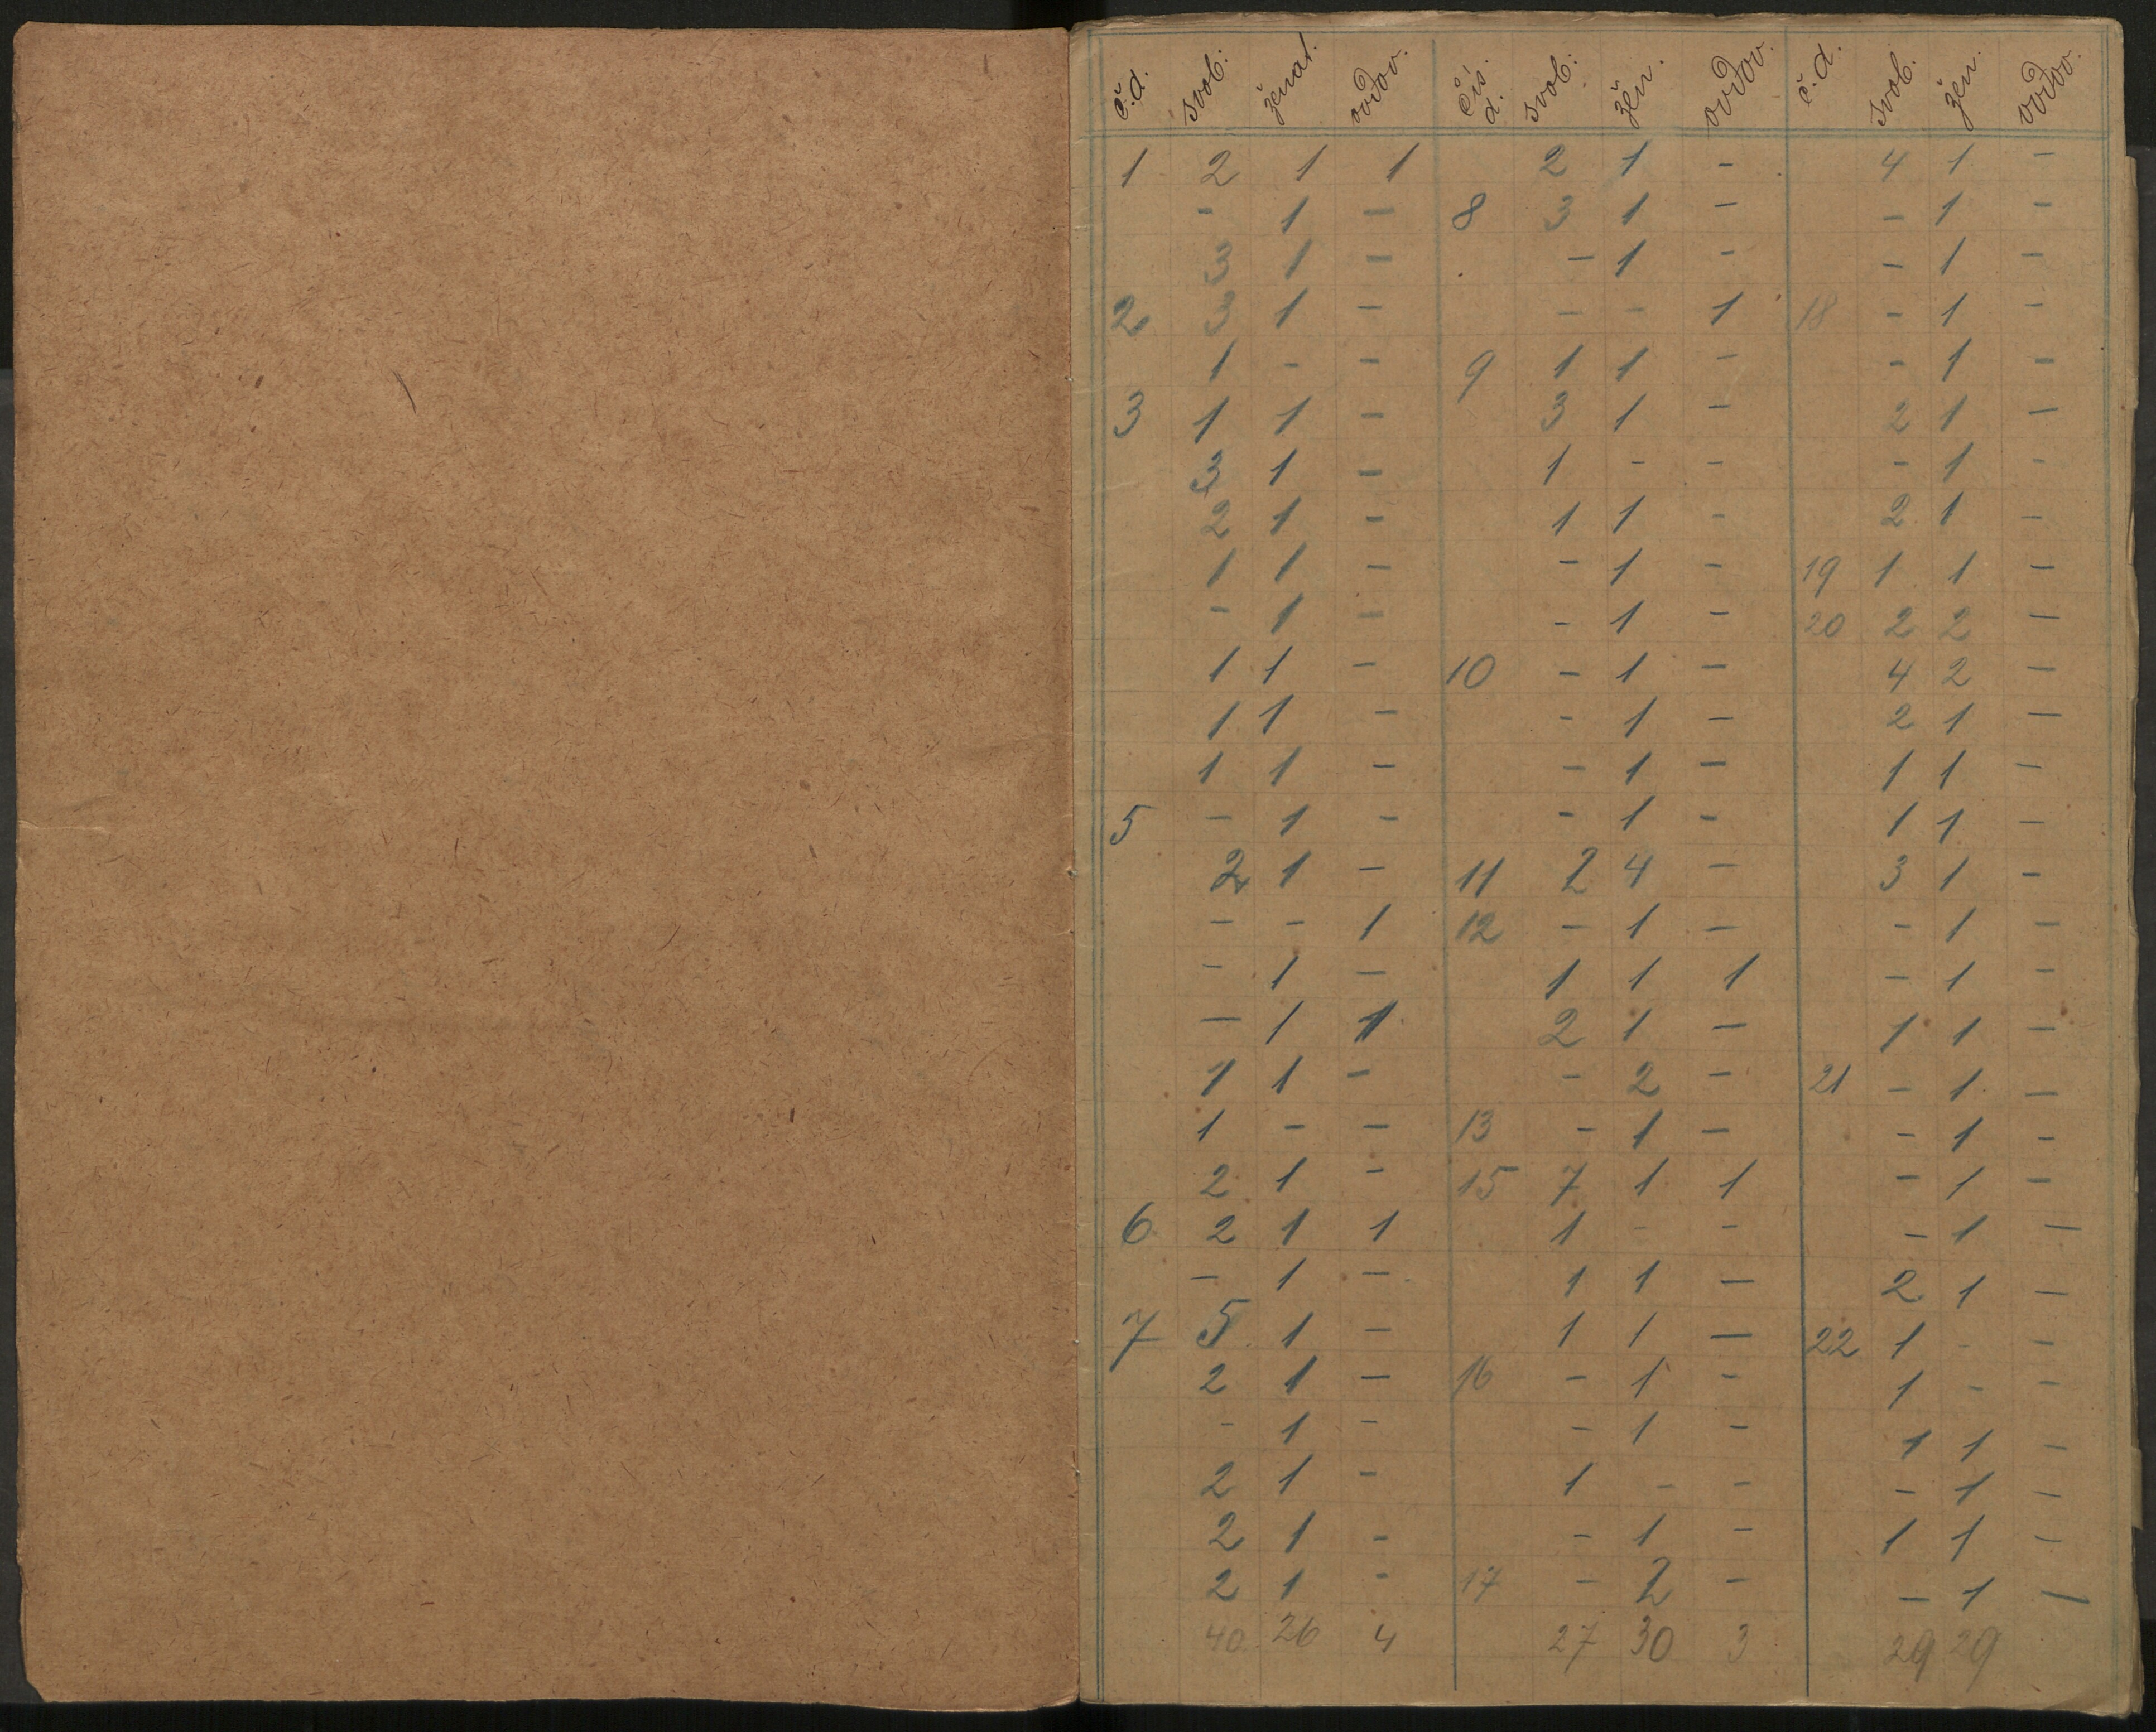 č.d. svob: ženat. ovdov. čís. d. svob: žen. ovdov. č.d. svob. žen. ovdov.
1 2 1 1 2 1 - 4 1 -
- 1 - 8 3 1 - - 1 -
3 1 - - 1 - - 1 -
2 3 1 - - - 1 18 - 1 -
1 - - 9 1 1 - - 1 -
3 1 1 - 3 1 - 2 1 -
3 1 - 1 - - - 1 -
2 1 - 1 1 - 2 1 -
1 1 - - 1 - 19 1 1 -
- 1 - - 1 - 20 2 2 -
1 1 - 10 - 1 - 4 2 -
1 1 - - 1 - 2 1 -
1 1 - - 1 - 1 1 -
5 - 1 - - 1 - 1 1 -
2 1 - 11 2 4 - 3 1 -
- - 1 12 - 1 - - 1 -
- 1 - 1 1 1 - 1 -
- 1 1 2 1 - 1 1 -
1 1 - - 2 - 21 - 1 -
1 - - 13 - 1 - - 1 -
2 1 - 15 7 1 1 - 1 -
6 2 1 1 1 - - - 1 -
- 1 - 1 1 - 2 1 -
7 5 1 - 1 1 - 22 1 - -
2 1 - 16 - 1 - 1 - -
- 1 - - 1 - 1 1 -
2 1 - 1 - - - 1 -
2 1 - - 1 - 1 1 -
2 1 - 17 - 2 - - 1 -
40 26 4 27 30 3 29 29